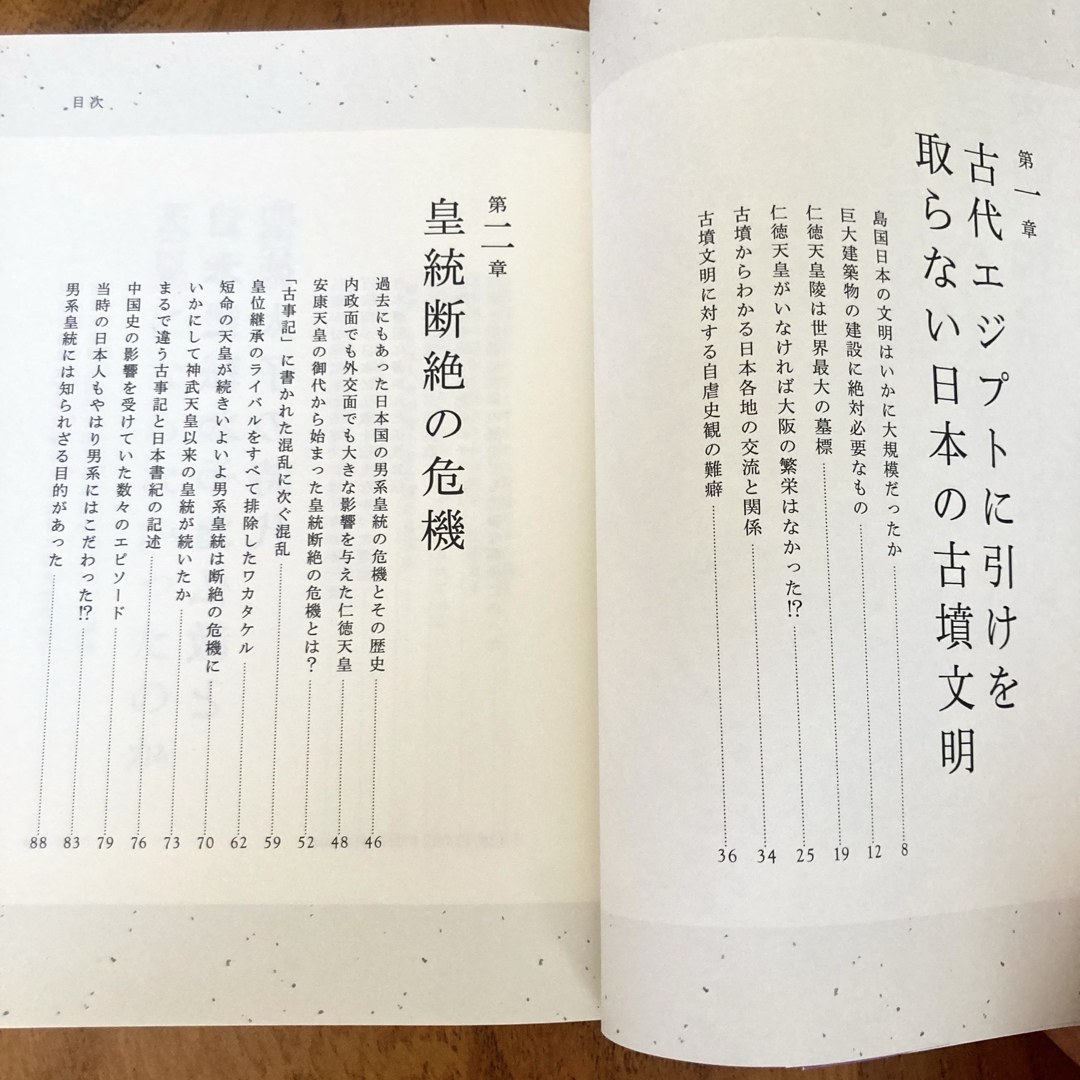 第一章
古代エジプトに引けを
取らない日本の古墳文明
島国日本の文明はいかに大規模だったか 8
巨大建築物の建設に絶対必要なもの 12
仁徳天皇陵は世界最大の墓標 19
仁徳天皇がいなければ大阪の繁栄はなかった!? 25
古墳からわかる日本各地の交流と関係 34
古墳文明に対する自虐史観の難癖 36
目次
第二章
皇統断絶の危機
過去にもあった日本国の男系皇統の危機とその歴史 46
内政面でも外交面でも大きな影響を与えた仁徳天皇 48
安康天皇の御代から始まった皇統断絶の危機とは? 52
「古事記」に書かれた混乱に次ぐ混乱 59
皇位継承のライバルをすべて排除したワカタケル 62
短命の天皇が続きいよいよ男系皇統は断絶の危機に 70
いかにして神武天皇以来の皇統が続いたか 73
まるで違う古事記と日本書紀の記述 76
中国史の影響を受けていた数々のエピソード 79
当時の日本人もやはり男系にはこだわった!? 83
男系皇統には知られざる目的があった 88